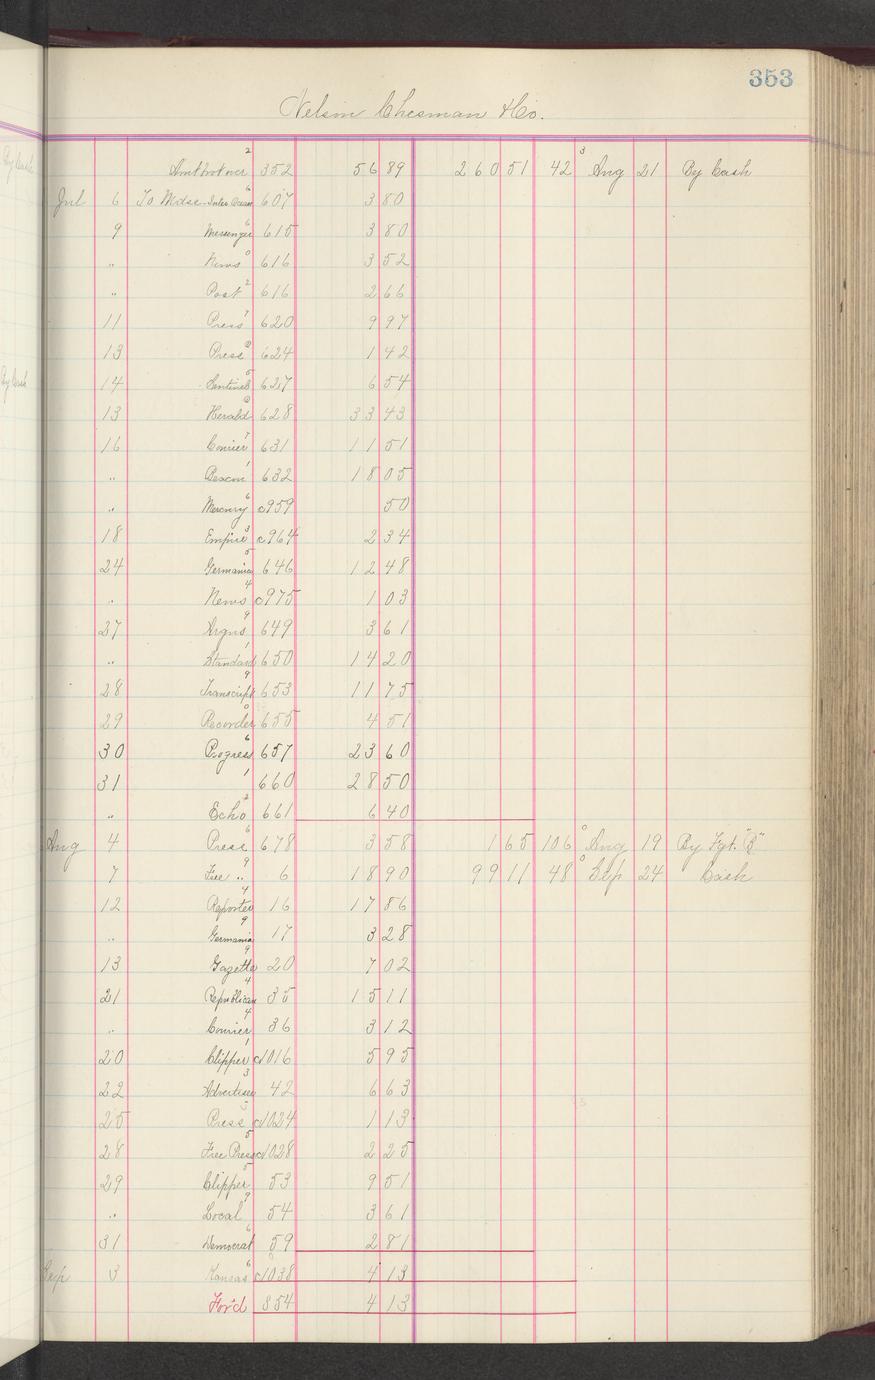 353
Nelson Chesman & Co.
Amt brot over 2 352 56 89 260 51 42 3 Aug 21 By Cash
Jul 6 To Mdse Inter Ocean 6 607 3 80
9 Messenger 6 615 3 80
" News 0 616 3 52
" Post 2 616 2 66
11 Press 7 620 9 97
13 Press 624 1 42
14 Sentinel 5 627 6 54
13 Herald 628 33 43
16 Courier 7 631 11 51
" Beacon 1 632 18 05
" Mercury 6 c959 50
18 Empire 3 c964 2 34
24 Germania 5 646 12 48
" News 4 c975 1 03
27 Argus 9 649 3 61
" Standard 1 650 14 20
28 Transcript 9 653 11 75
29 Recorder 0 655 4 51
30 Progress 6 657 23 60
31 1 660 28 50
" Echo 2 661 6 40
Aug 4 Press 6 678 3 58 1 65 106 0 Aug 19 By Fgt. "B"
7 Free " 9 6 18 90 99 11 48 0 Sep 24 Cash
12 Reporter 4 16 17 86
" Germania 9 17 3 28
13 Gazette 9 20 7 02
21 Republican 4 35 15 11
" Courier 4 36 3 12
20 Clipper 1 c1016 5 95
22 Advertiser 3 42 6 63
25 Press c1024 1 13
28 Free Press 5 c1028 2 25
29 Clipper 5 53 9 51
" Local 9 54 3 61
31 Democrat 6 59 2 81
Sep 3 Kansas 6 c1038 4 13
For'd 854 4 13